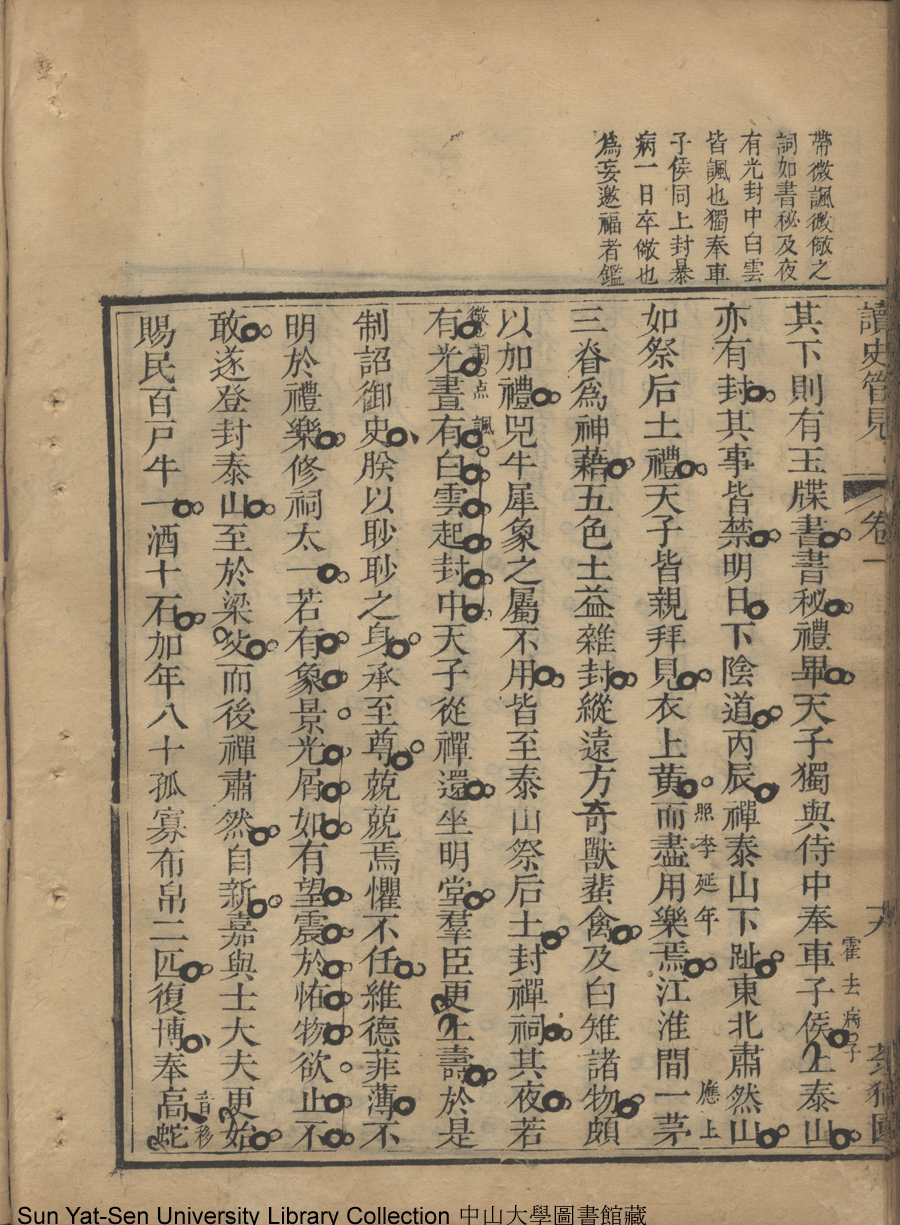 帶微諷微儆之
詞如書秘及夜
有光封中白雲
皆諷也獨奉車
子侯同上封暴
病一日卒儆也
為妄邀福者鑑
讀史管見
卷一
其下則有玉牒書書秘禮畢天子獨與侍中奉車子侯上泰山
霍去病子
亦有封其事皆禁明日下陰道丙辰禪泰山下趾東北肅然山
如祭后土禮天子皆親拜見衣上黃而盡用樂焉江淮間一茅
照李延年
應上
三脊為神藉五色土益雜封縱遠方奇獸蜚禽及白雉諸物頗
以加禮兕牛犀象之屬不用皆至泰山祭后土封禪祠其夜若
有光晝有白雲起封中天子從禪還坐明堂羣臣更上壽於是
微詞点諷
制詔御史朕以眇眇之身承至尊兢兢焉懼不任維德菲薄不
明於禮樂修祠太一若有象景光屑如有望震於怖物欲止不
敢遂登封泰山至於梁父而後禪肅然自新嘉與士大夫更始
賜民百戶牛一酒十石加年八十孤寡布帛二匹復博奉高蛇
音移
Sun Yat-Sen University Library Collection 中山大學圖書館藏